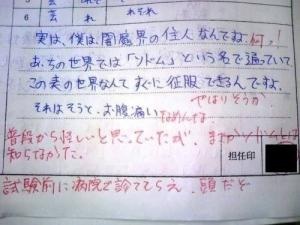 6
実は、僕は、闇魔界の住人なんですね。何っ!
あっちの世界では「ソドム」という名で通っていて
この表の世界なんてすぐに征服できるんですよ。
やはりそうか
それはそうと、お腹痛い
なめんな
普段から怪しいと思っていたが、まさかソドムとは
知らなかった。
担任印
試験前に病院で診てもらえ。頭だぞ